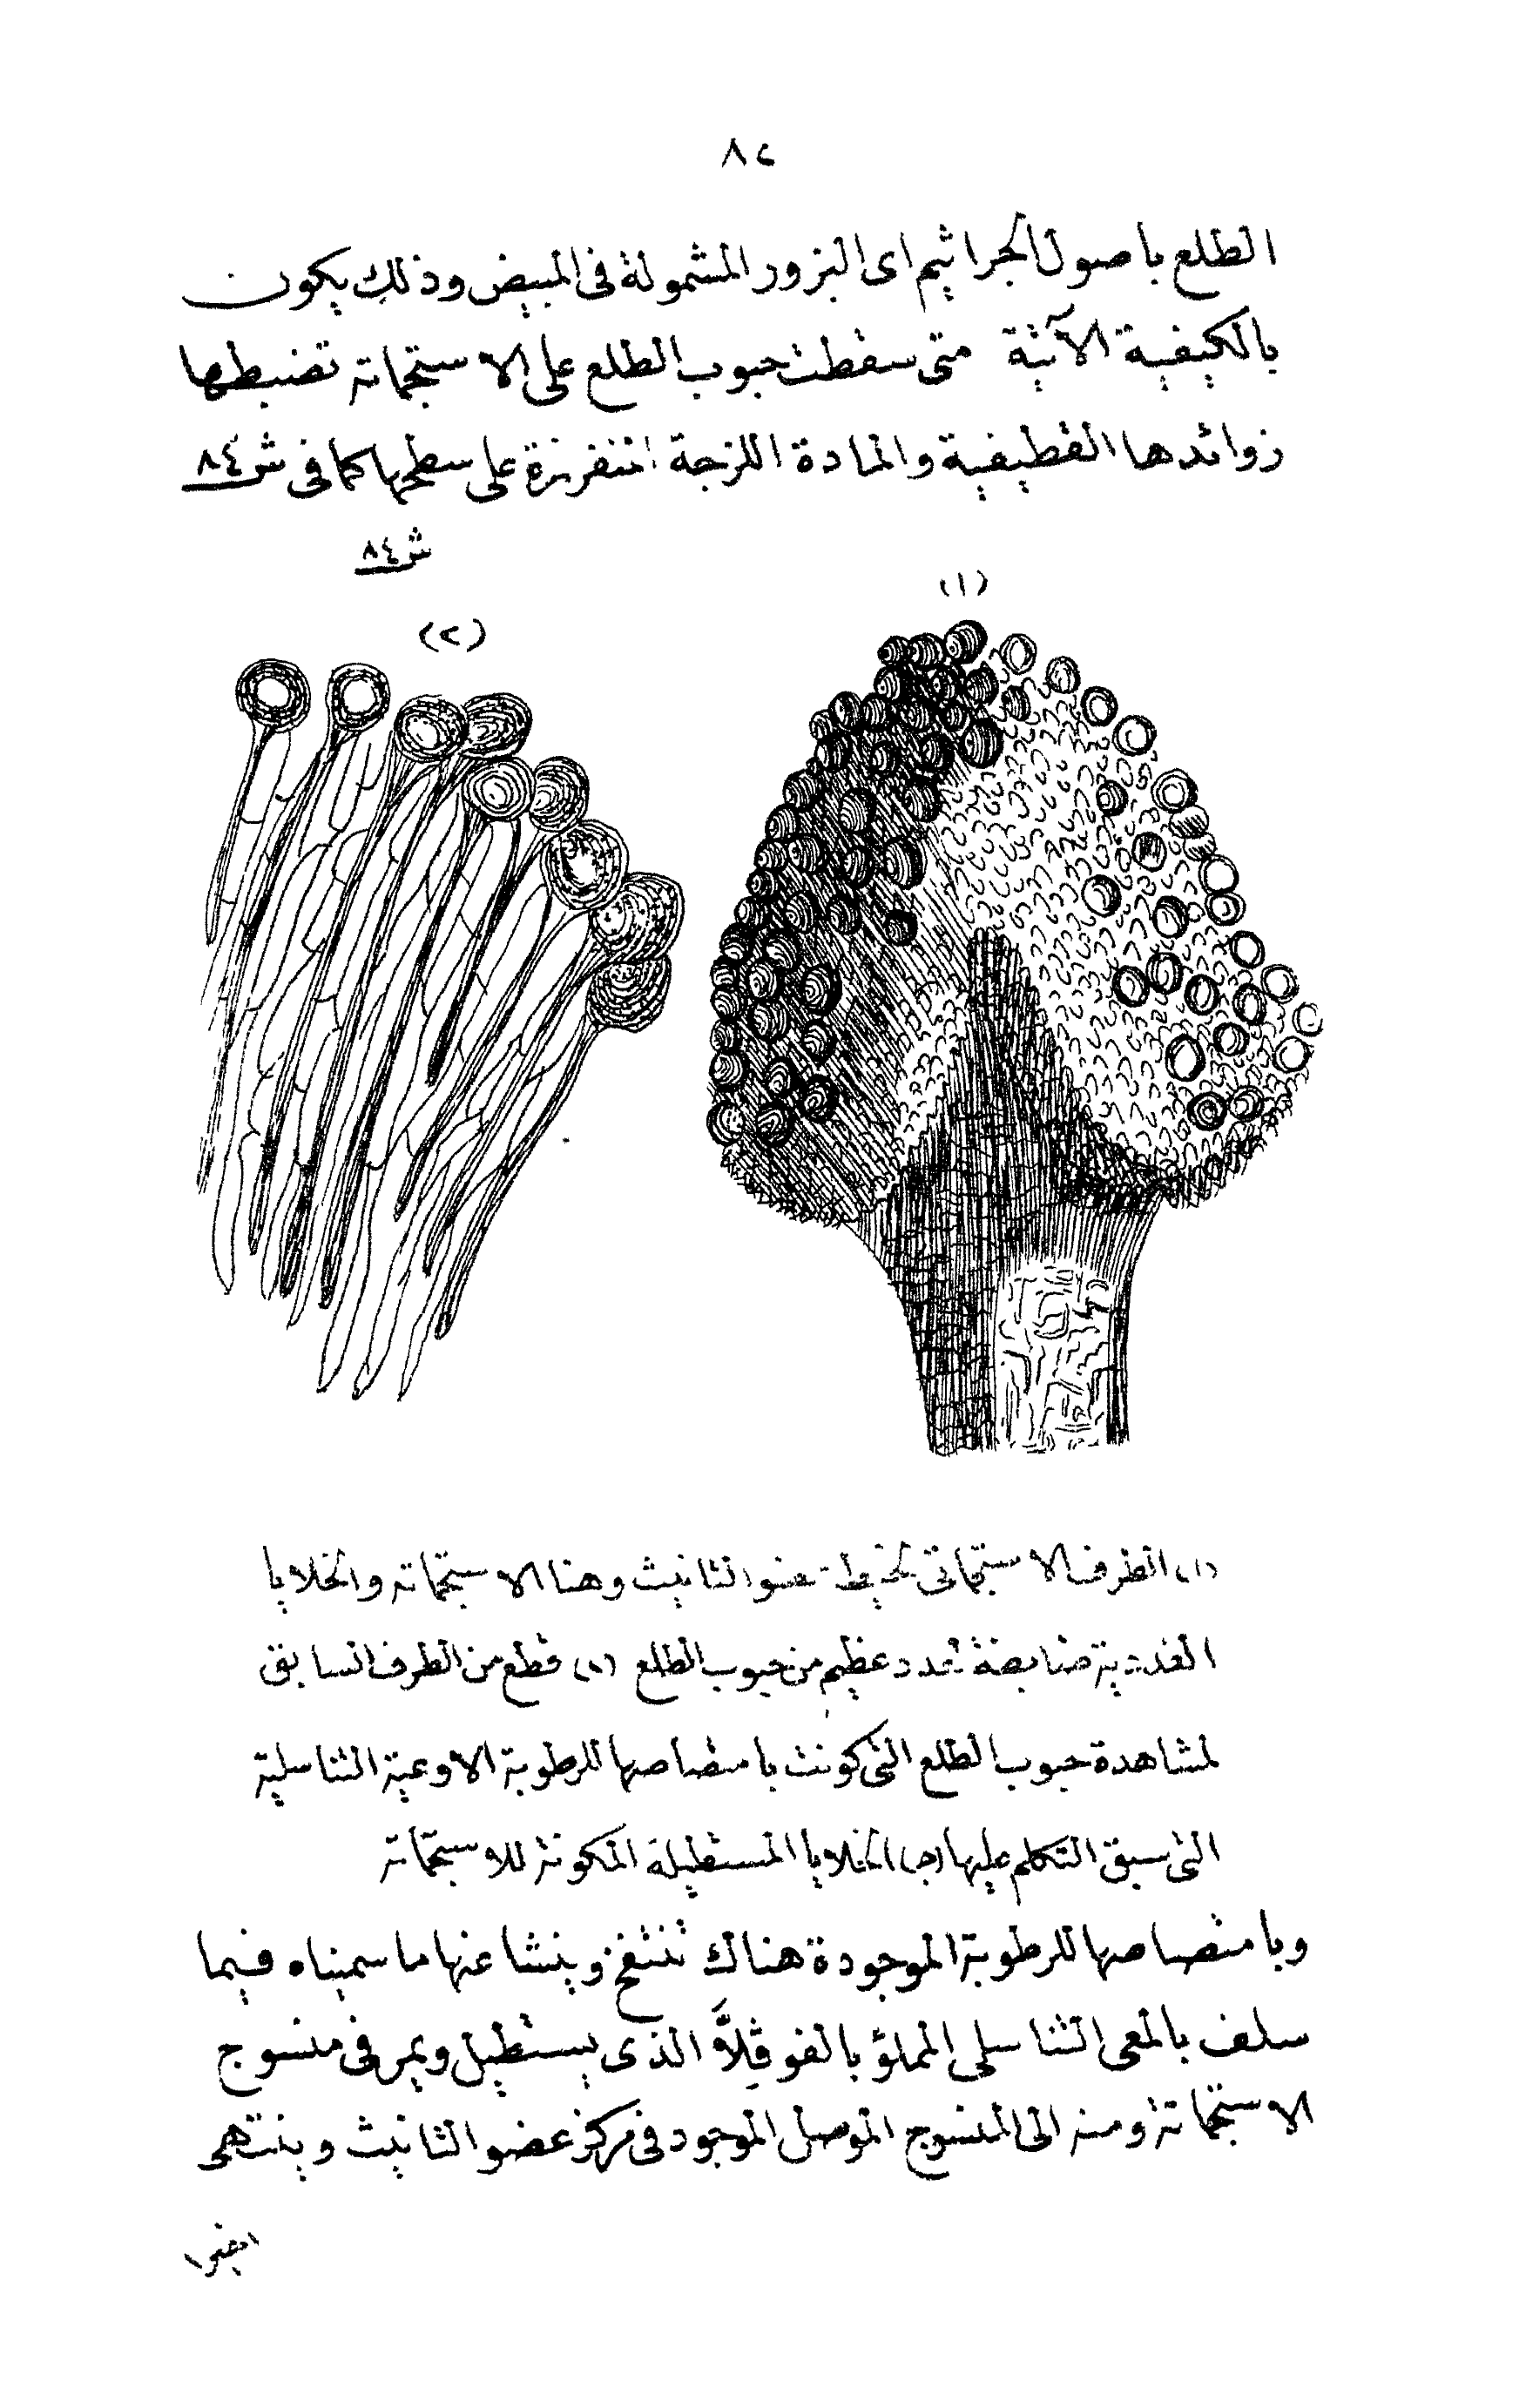 ٨٢
الطلع باصول الجراثيم اى البزور المشمولة فى المبيض وذلك يكون
بالكيفية الآتية متى سقطت حبوب الطلع على الاستجماته تضبطها
زوائدها القطيفية والمادة اللزجة المنفرزة على سطحها كما فى ش٨٤
ش٨٤
(١)
(٢)
(١) الطرف الاستجماتى لخيط عضو التانيث وهنا الاستجماته والخلايا
الغددية ضابضة لعدد عظيم من حبوب الطلع (٢) قطع من الطرف السابق
لمشاهدة حبوب الطلع التى كونت بامتصاصها للرطوبة الاوعية التناسلية
التى سبق التكلم عليها (جـ) الخلايا المستطيلة المكونة للاستجماته
وبامتصاصها للرطوبة الموجودة هناك تنتفخ وينشا عنها ما سميناه فيما
سلف بالمعى التناسلى المملؤ بالفوڤلاَّ الذى يستطيل ويمر فى منسوج
الاستجماته ومنه الى المنسوج الموصل الموجود فى مركز عضو التانيث وينتهى
اخيرا